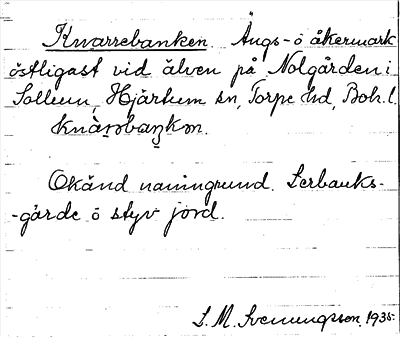 Knarrebanken. Ängs- o åkermark
östligast vid älven på Nolgården i
Sollum, Hjärtum sn, Torpe hd, Boh. l.
Okänd namngrund. Lerbanks-
-gärde o styv jord.
S. M. Svenungsson, 1935.